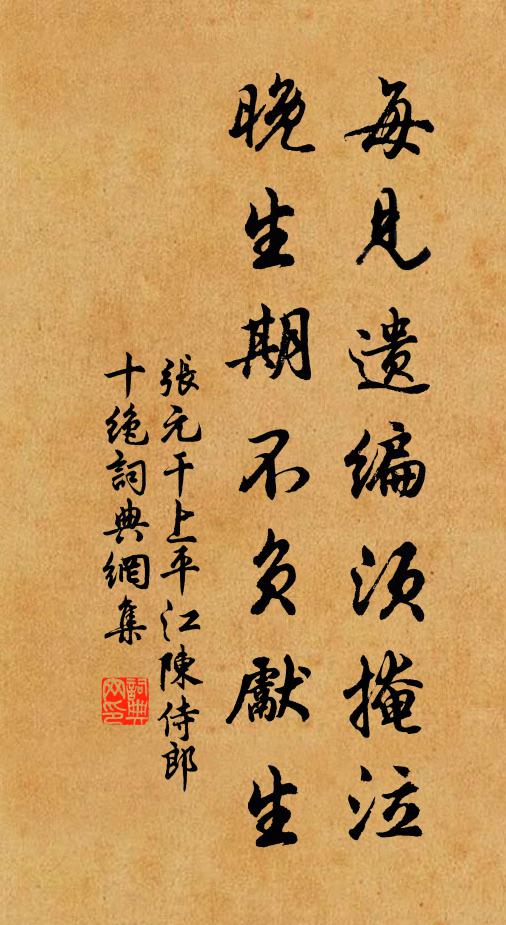 每見遺編須掩泣
晚生期不負獻生
張元干上平江陳侍郎
十絶詞典網集
詞典
网印